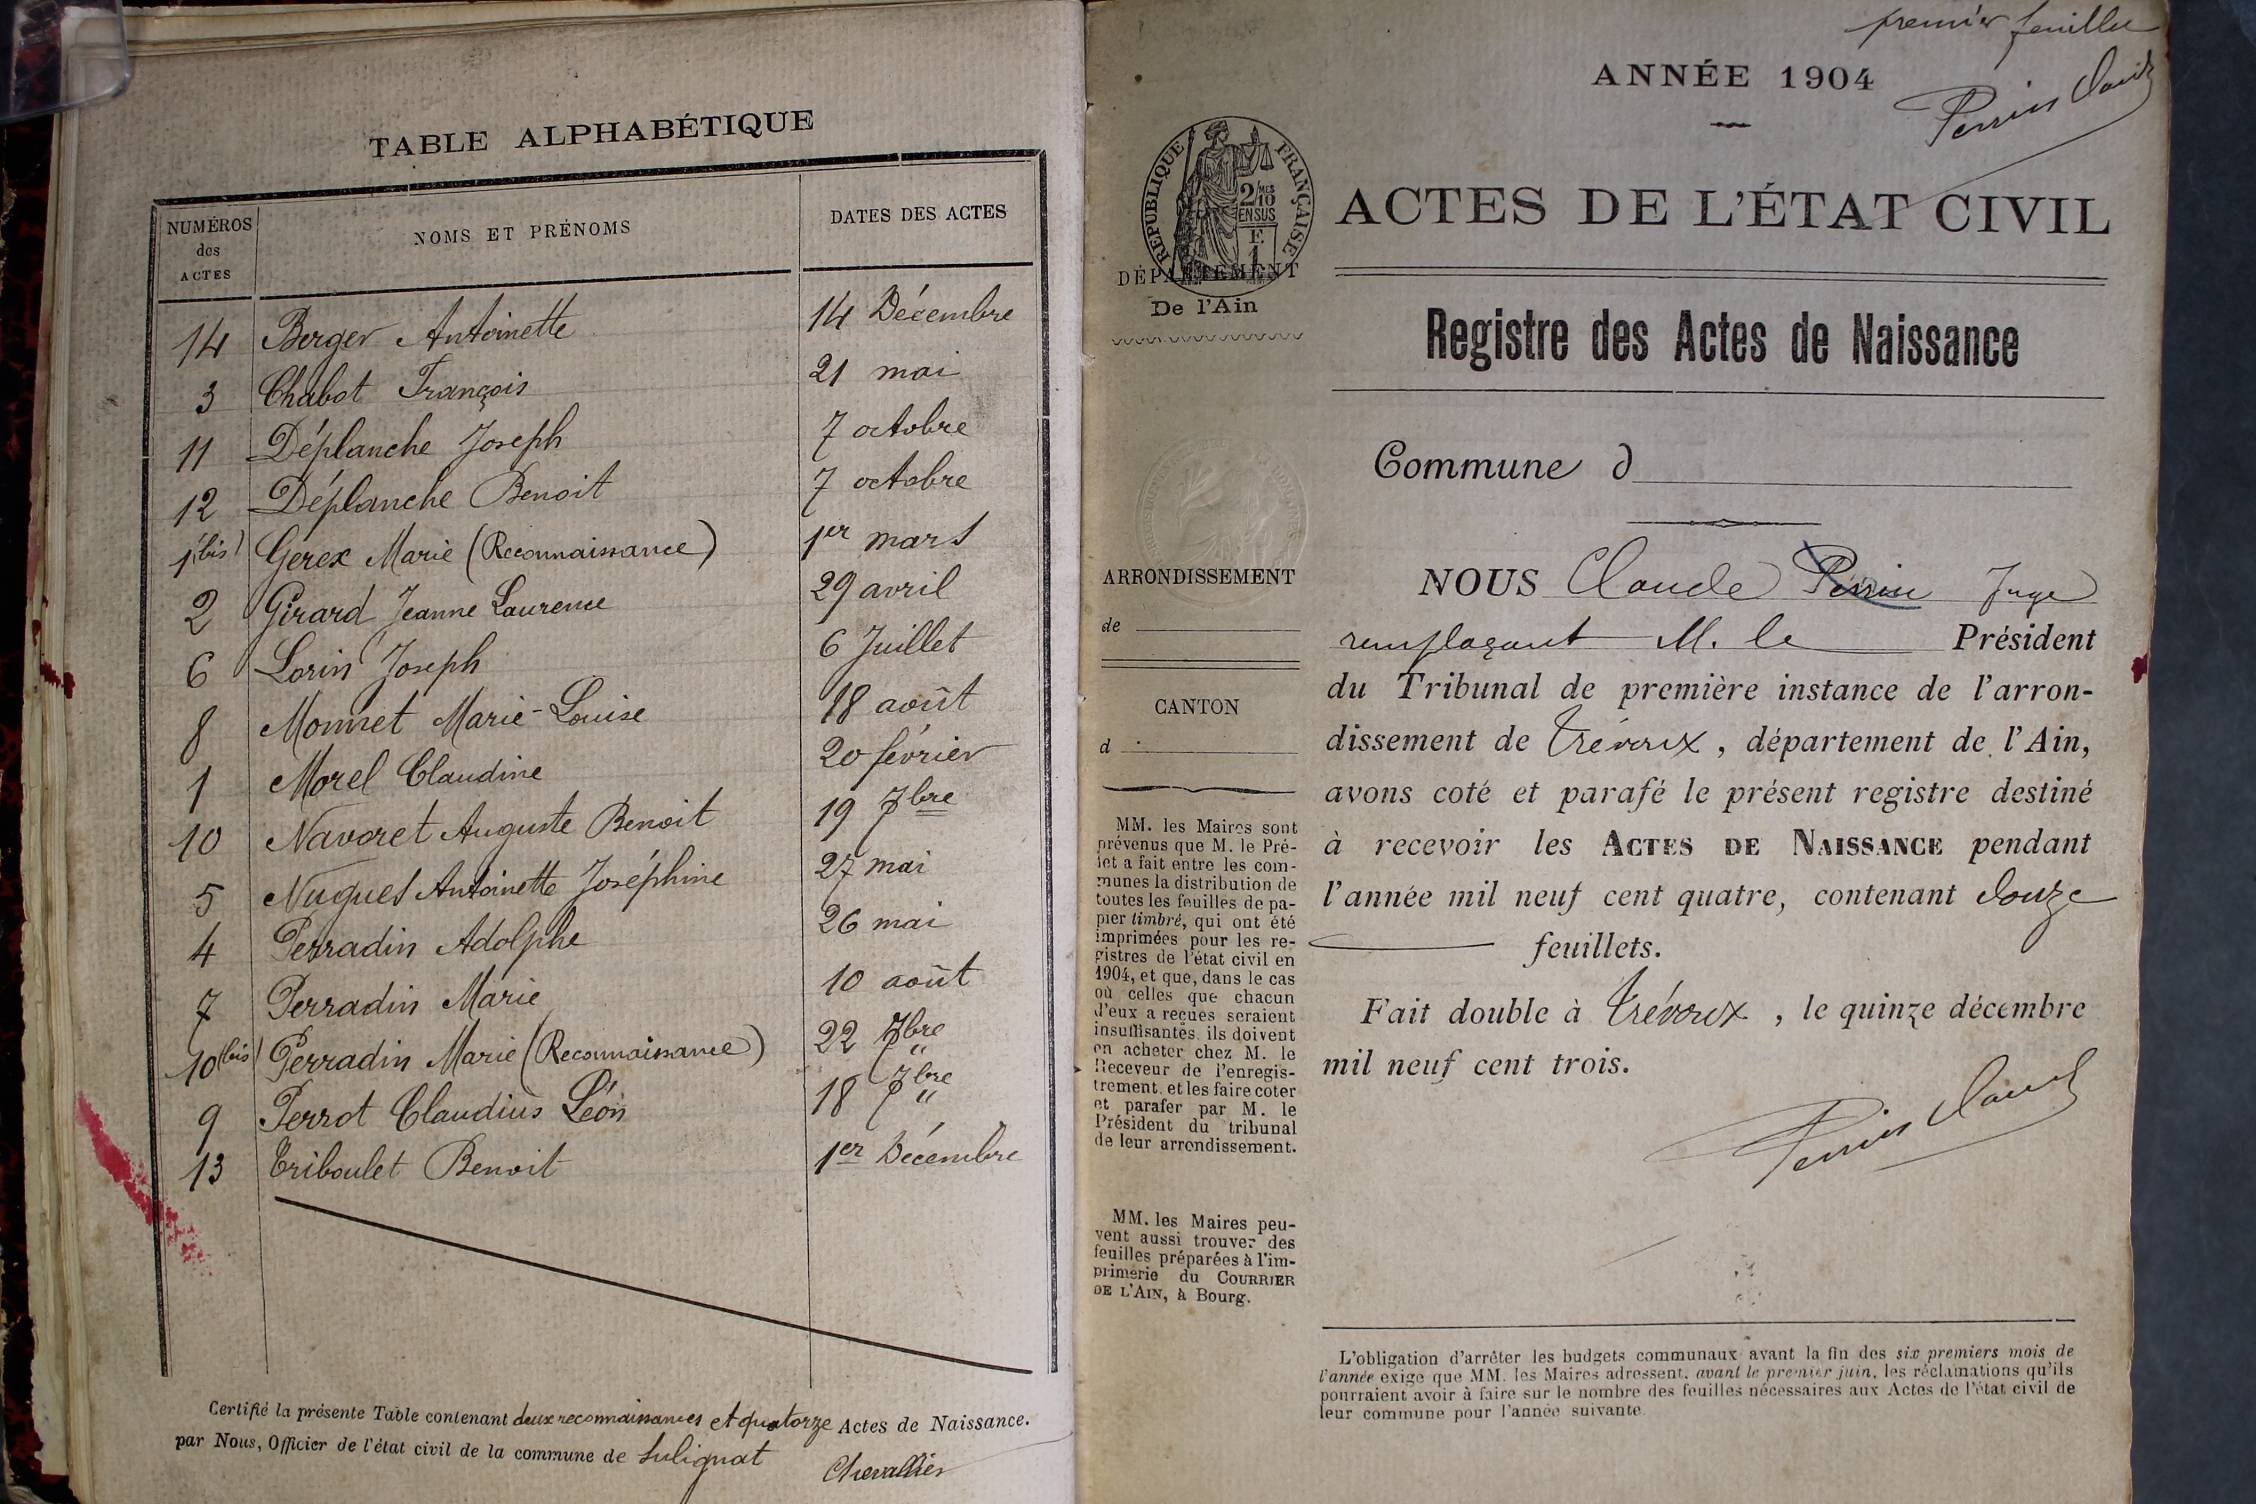 TABLE ALPHABÉTIQUE
NUMÉROS des ACTES NOMS ET PRÉNOMS DATES DES ACTES
14 Berger Antoinette 14 Décembre
3 Chabot François 21 mai
11 Déplanche Joseph 7 octobre
12 Déplanche Benoit 7 octobre
1(bis) Gerex Marie (Reconnaissance) 1er mars
2 Girard Jeanne Laurence 29 avril
6 Lorin Joseph 6 Juillet
8 Monnet Marie-Louise 18 août
1 Morel Claudine 20 février
10 Navoret Auguste Benoit 19 7bre
5 Nugues Antoinette Joséphine 27 mai
4 Perradin Adolphe 26 mai
7 Perradin Marie 10 août
10(bis) Perradin Marie (Reconnaissance) 22 7bre
9 Perrot Claudius Léon 18 7bre
13 Triboulet Benoit 1er Décembre
Certifié la présente Table contenant deux reconnaissances et quatorze Actes de Naissance.
par Nous, Officier de l'état civil de la commune de Sulignat
Chevallier
premier feuillet
Perrin Claude
ANNÉE 1904
RÉPUBLIQUE FRANÇAISE
2/10 MES
EN SUS
E
1
ACTES DE L'ÉTAT CIVIL
DÉPARTEMENT
De l'Ain
Registre des Actes de Naissance
Commune d
ARRONDISSEMENT
de
CANTON
d
MM. les Maires sont
prévenus que M. le Pré-
fet a fait entre les com-
munes la distribution de
toutes les feuilles de pa-
pier timbré, qui ont été
imprimées pour les re-
gistres de l'état civil en
1904, et que, dans le cas
où celles que chacun
d'eux a reçues seraient
insuffisantes, ils doivent
en acheter chez M. le
Receveur de l'enregis-
trement, et les faire coter
et parafer par M. le
Président du tribunal
de leur arrondissement.
MM. les Maires peu-
vent aussi trouver des
feuilles préparées à l'im-
primerie du COURRIER
DE L'AIN, à Bourg.
NOUS Claude Perrin Juge
remplaçant M. le Président
du Tribunal de première instance de l'arron-
dissement de Trévoux, département de l'Ain,
avons coté et parafé le présent registre destiné
à recevoir les ACTES DE NAISSANCE pendant
l'année mil neuf cent quatre, contenant douze
feuillets.
Fait double à Trévoux, le quinze décembre
mil neuf cent trois.
Perrin Claude
L'obligation d'arrêter les budgets communaux avant la fin des six premiers mois de
l'année exige que MM. les Maires adressent, avant le premier juin, les réclamations qu'ils
pourraient avoir à faire sur le nombre des feuilles nécessaires aux Actes de l'état civil de
leur commune pour l'année suivante.